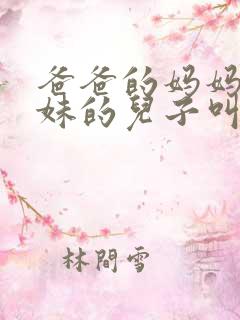 爸爸的妈妈
妹的兒子叫
林間雪